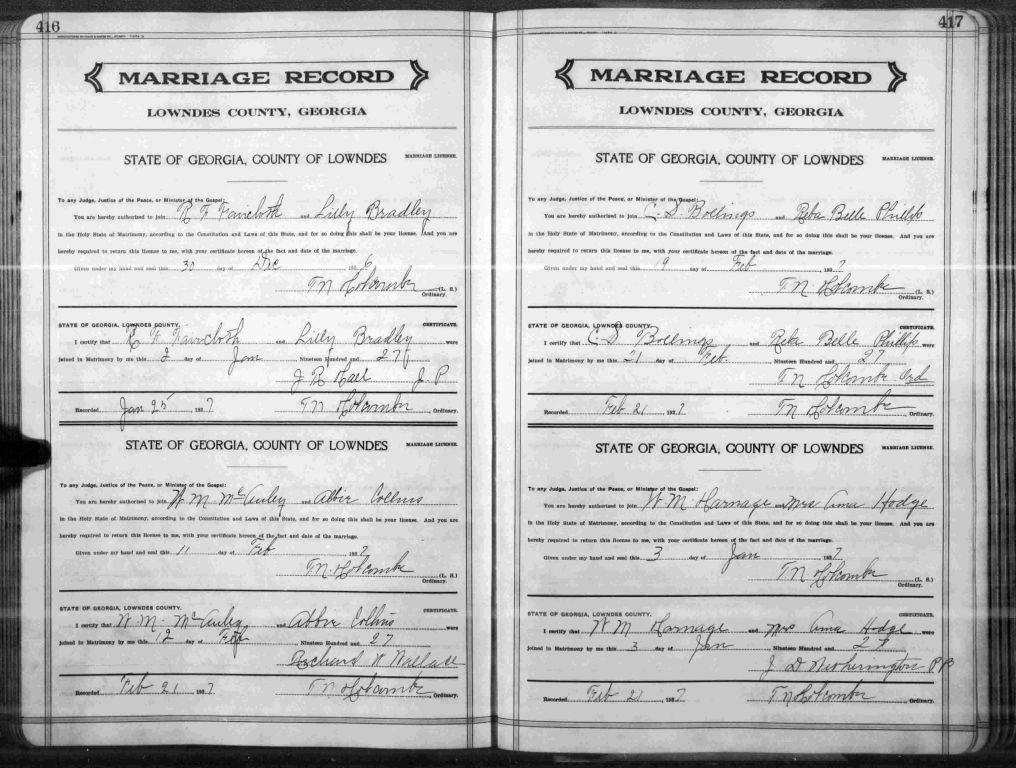 416
MARRIAGE RECORD
LOWNDES COUNTY, GEORGIA
STATE OF GEORGIA, COUNTY OF LOWNDES MARRIAGE LICENSE.
To any Judge, Justice of the Peace, or Minister of the Gospel:
You are hereby authorized to join R F Faircloth and Lilly Bradley
in the Holy State of Matrimony, according to the Constitution and Laws of this State, and for so doing this shall be your license. And you are
hereby required to return this license to me, with your certificate hereon of the fact and date of the marriage.
Given under my hand and seal this 30 day of Dec 1926
T N Holcombe (L. S.)
Ordinary.
STATE OF GEORGIA, LOWNDES COUNTY. CERTIFICATE.
I certify that R F Faircloth and Lilly Bradley were
joined in Matrimony by me this 2 day of Jan Nineteen Hundred and 27
J R Hall J P
Recorded Jan 25, 1927 T N Holcombe Ordinary.
STATE OF GEORGIA, COUNTY OF LOWNDES MARRIAGE LICENSE.
To any Judge, Justice of the Peace, or Minister of the Gospel:
You are hereby authorized to join W M McCauley and Abbie Collins
in the Holy State of Matrimony, according to the Constitution and Laws of this State, and for so doing this shall be your license. And you are
hereby required to return this license to me, with your certificate hereon of the fact and date of the marriage.
Given under my hand and seal this 11 day of Feb, 1927
T N Holcombe (L. S.)
Ordinary.
STATE OF GEORGIA, LOWNDES COUNTY. CERTIFICATE.
I certify that W. M. McCauley and Abbie Collins were
joined in Matrimony by me this 12 day of Feb, Nineteen Hundred and 27
Richard W Wallace
Recorded Feb 21, 1927 T N Holcombe Ordinary.
417
MARRIAGE RECORD
LOWNDES COUNTY, GEORGIA
STATE OF GEORGIA, COUNTY OF LOWNDES MARRIAGE LICENSE.
To any Judge, Justice of the Peace, or Minister of the Gospel:
You are hereby authorized to join C. S Boelings and Reba Belle Phillips
in the Holy State of Matrimony, according to the Constitution and Laws of this State, and for so doing this shall be your license. And you are
hereby required to return this license to me, with your certificate hereon of the fact and date of the marriage.
Given under my hand and seal this 19 day of Feb, 1927
T N Holcombe (L. S.)
Ordinary.
STATE OF GEORGIA, LOWNDES COUNTY. CERTIFICATE.
I certify that C. S Boelings and Reba Belle Phillips were
joined in Matrimony by me this 21 day of Feb., Nineteen Hundred and 27
T N Holcombe Ord
Recorded Feb 21, 1927 T N Holcombe Ordinary.
STATE OF GEORGIA, COUNTY OF LOWNDES MARRIAGE LICENSE.
To any Judge, Justice of the Peace, or Minister of the Gospel:
You are hereby authorized to join W M Harnage and Mrs Ama Hodge
in the Holy State of Matrimony, according to the Constitution and Laws of this State, and for so doing this shall be your license. And you are
hereby required to return this license to me, with your certificate hereon of the fact and date of the marriage.
Given under my hand and seal this 3 day of Jan, 1927
T N Holcombe (L. S.)
Ordinary.
STATE OF GEORGIA, LOWNDES COUNTY. CERTIFICATE.
I certify that W M Harnage and Mrs Ama Hodge were
joined in Matrimony by me this 3 day of Jan, Nineteen Hundred and 27
J D Netherington
Recorded Feb 21, 1927 T N Holcombe Ordinary.